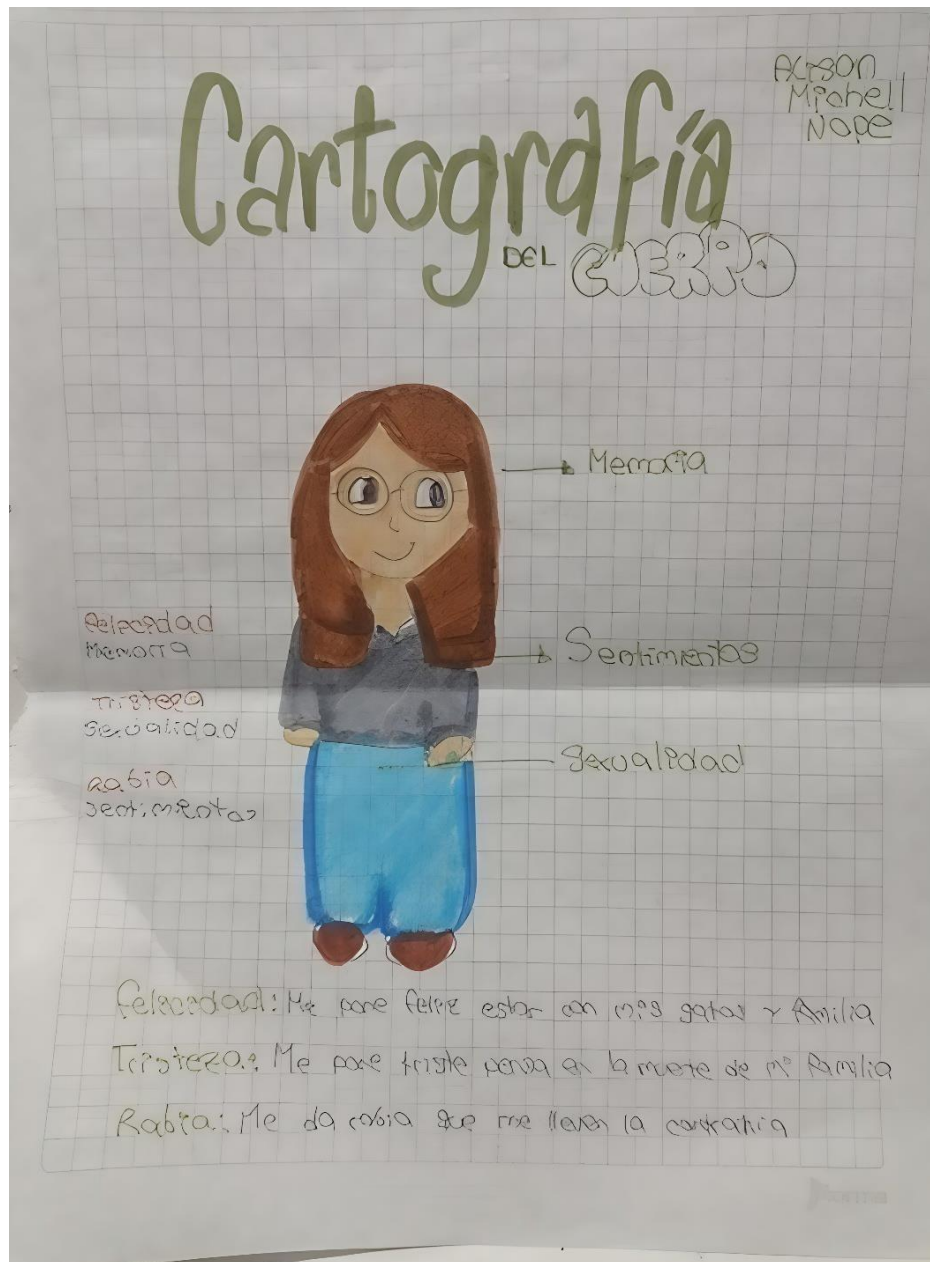 Cartografía
DEL CUERPO
Alison
Michell
Nope
Memoria
Sentimientos
Sexualidad
Felecidad
Memoria
Tristeza
Sexualidad
Rabia
Sentimientos
Felecidad: Me pone feliz estar con mis gatos y familia
Tristeza: Me pone triste pensa en la muerte de mi familia
Rabia: Me da rabia que me lleven la contraria